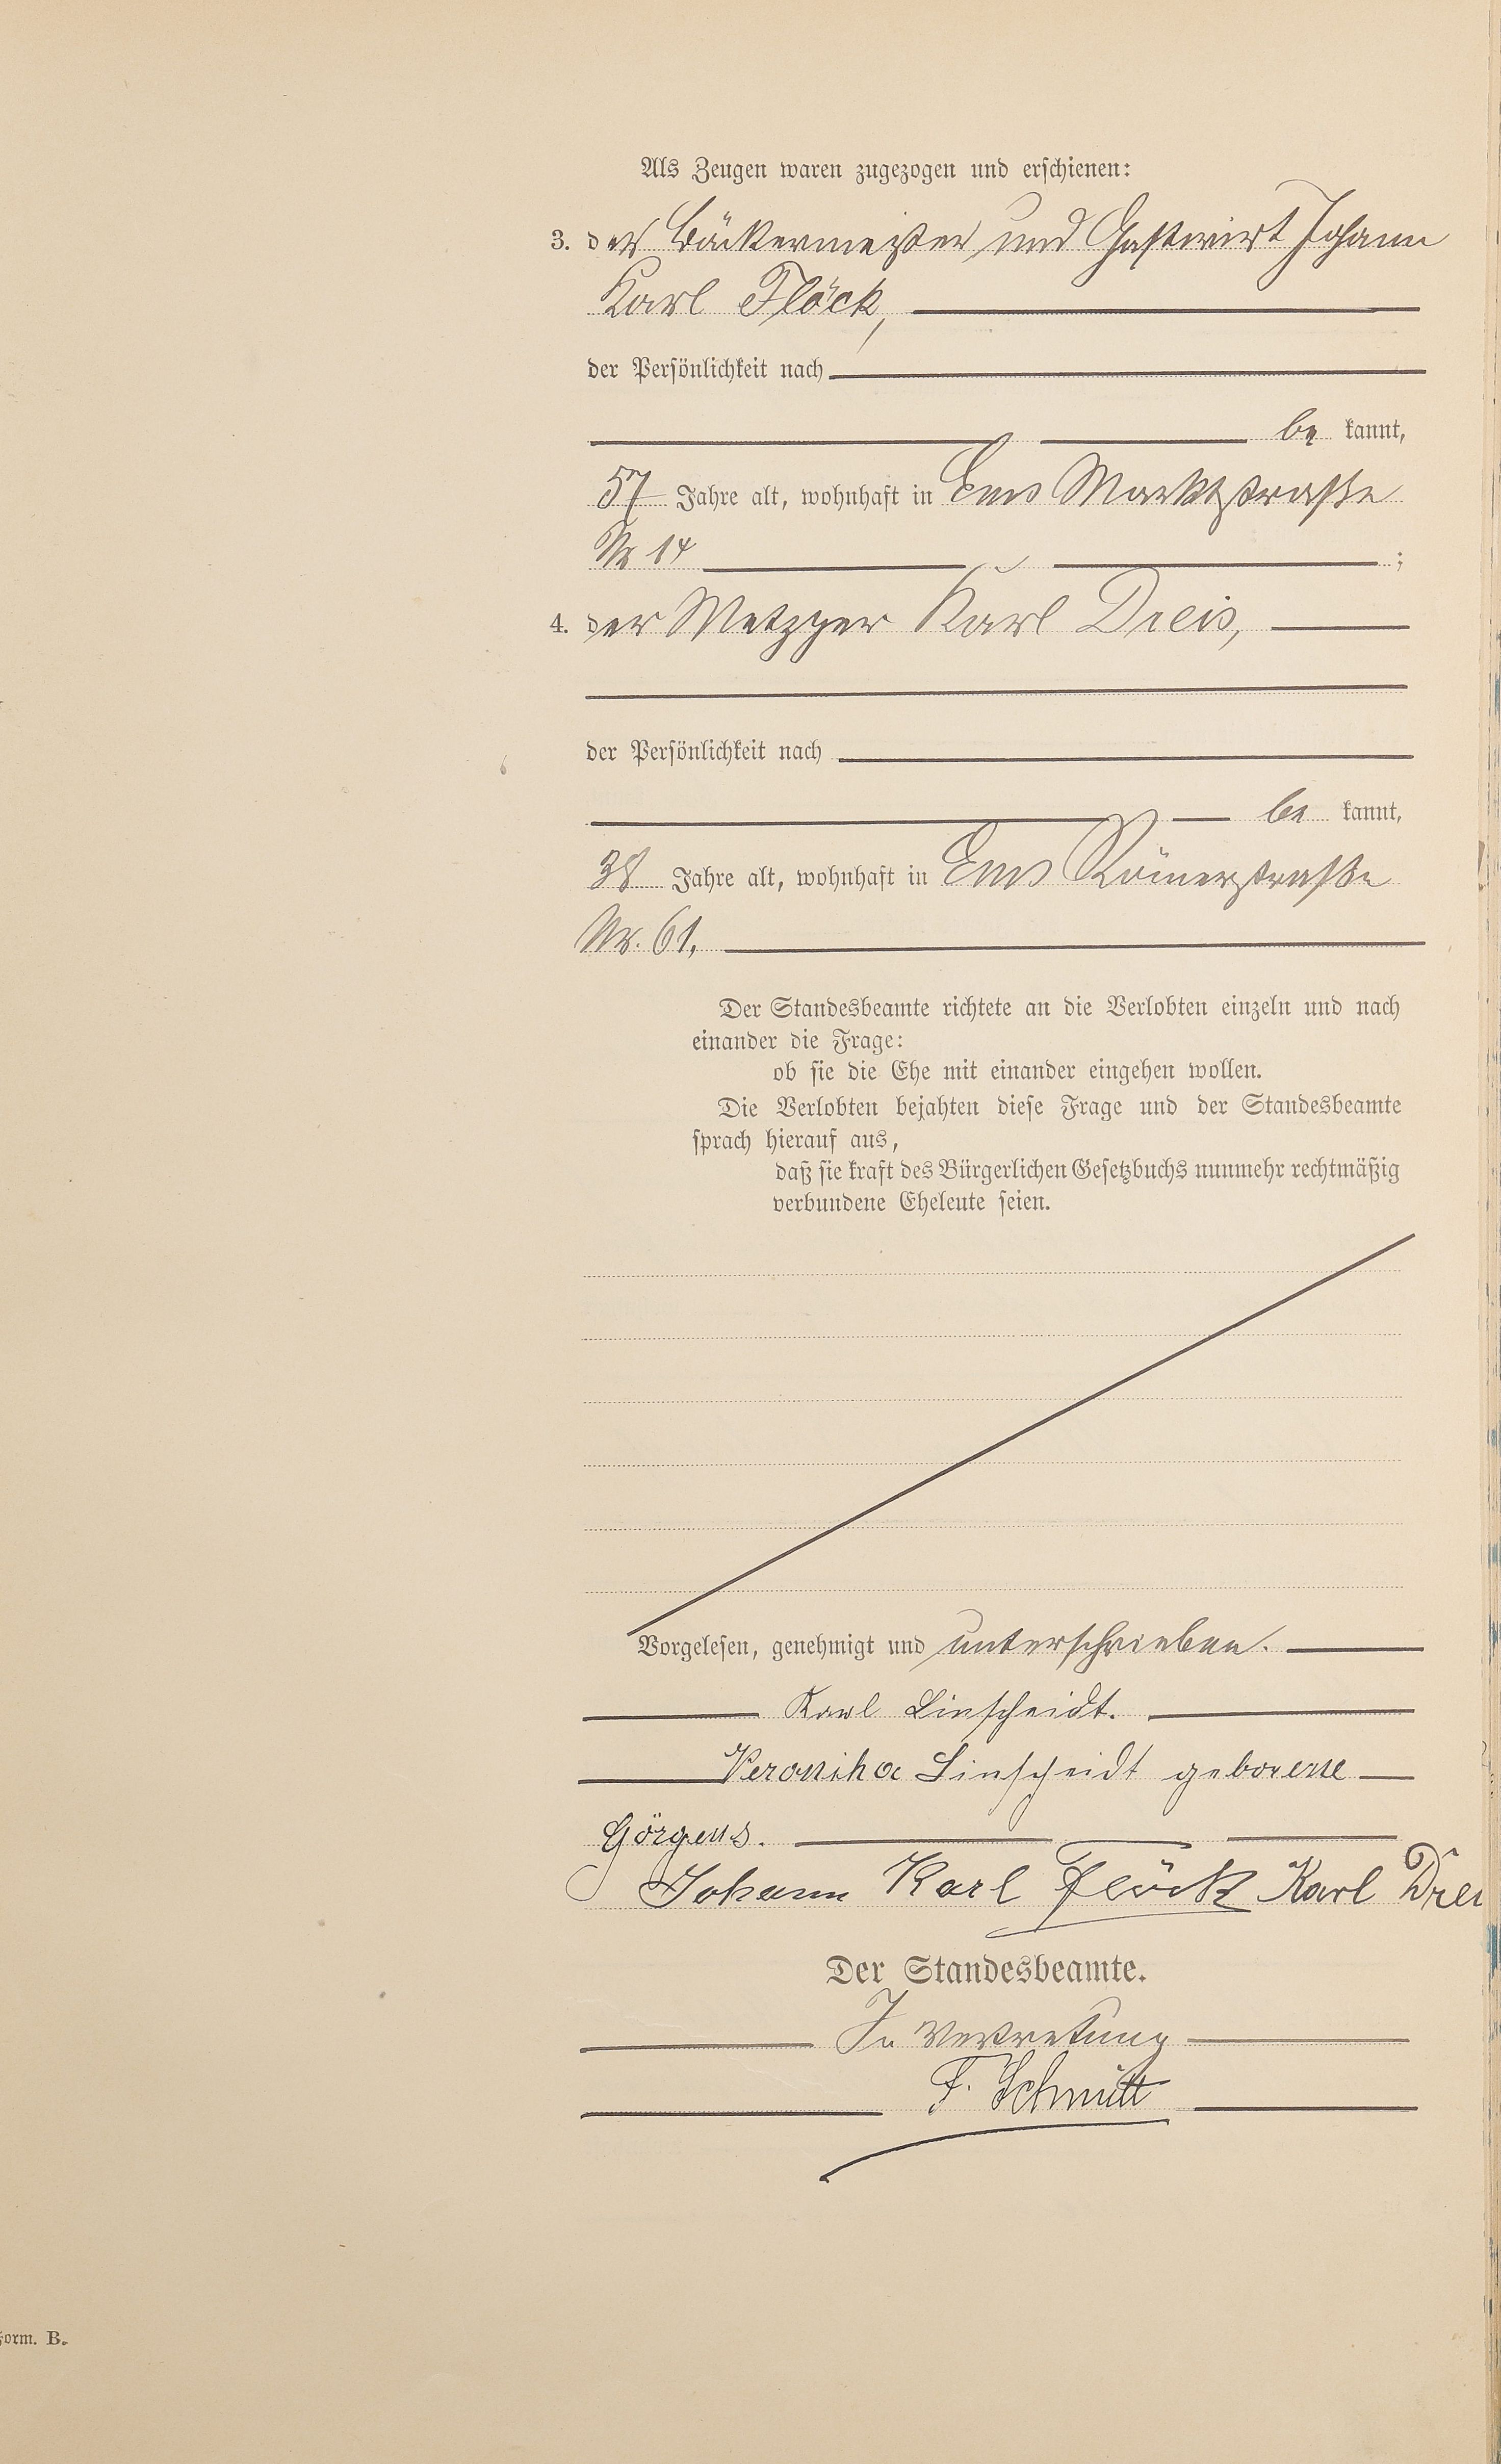 Als Zeugen waren zugezogen und erschienen:
3. der Bäckermeister und Gastwirt Johann
Karl Flöck,
der Persönlichkeit nach
be kannt,
57 Jahre alt, wohnhaft in Ems Marktstraße
Nr 14 ;
4. der Metzger Karl Dreis,
der Persönlichkeit nach
be kannt,
38 Jahre alt, wohnhaft in Ems Römerstraße
Nr. 61.
Der Standesbeamte richtete an die Verlobten einzeln und nach
einander die Frage:
ob sie die Ehe mit einander eingehen wollen.
Die Verlobten bejahten diese Frage und der Standesbeamte
sprach hierauf aus,
daß sie kraft des Bürgerlichen Gesetzbuchs nunmehr rechtmäßig
verbundene Eheleute seien.
Vorgelesen, genehmigt und unterschrieben.
Karl Linscheidt.
Veronika Linscheidt geborene
Görgens.
Johann Karl Flöck Karl Drei
Der Standesbeamte.
In Vertretung
F. Schmitt
Form. B.